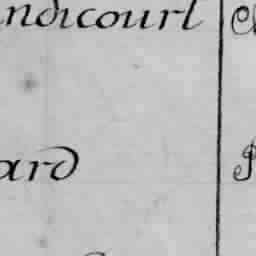 ndicourt
ard